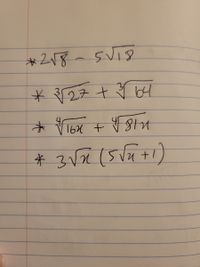 * 2√8 - 5√18
* ∛27 + ∛64
* ∜16x + ∜81x
* 3√x (5√x + 1)